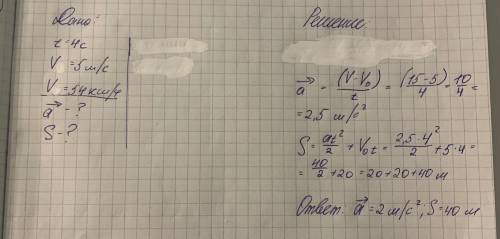 Дано:
t=4с
V =5м/с
V =54км/ч
a⃗ - ?
S - ?
Решение:
a⃗ = (V-V₀)/t = (15-5)/4 = 10/4 =
=2,5 м/с²
S = at²/2 + V₀t = 2,5·4²/2 + 5·4 =
= 40/2 + 20 = 20+20+40 м
Ответ: a⃗ = 2 м/с²; S = 40 м